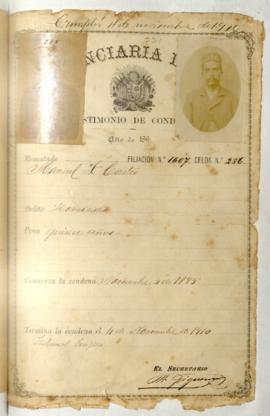 Cumplió 4 de noviembre de 1910
NCIARIA
TESTIMONIO DE COND
Año de 189
Rematado FILIACIÓN N.º 1607. CELDA N.º 286
Manuel
Delito Homicidio
Pena quince años
Comienza la condena Noviembre 4 de 1895
Termina la condena el 4 de Noviembre de 1910
Tribunal
EL SECRETARIO
M. Figueroa